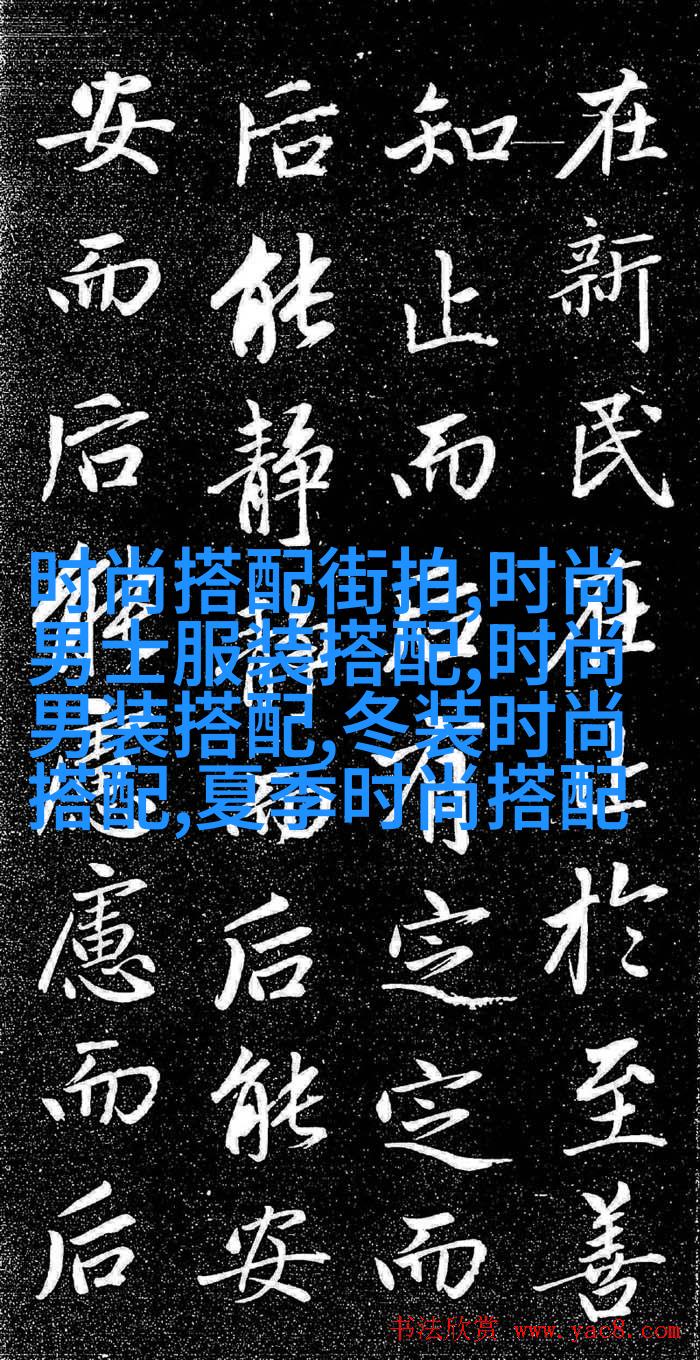 在新民在止於至善
知止而后有定定而
后能静静而后能安
安而后能慮慮而后
时尚搭配街拍,时尚
男士服装搭配,时尚
男装搭配,冬装时尚
搭配,夏季时尚搭配
书法欣赏 www.yac8.com